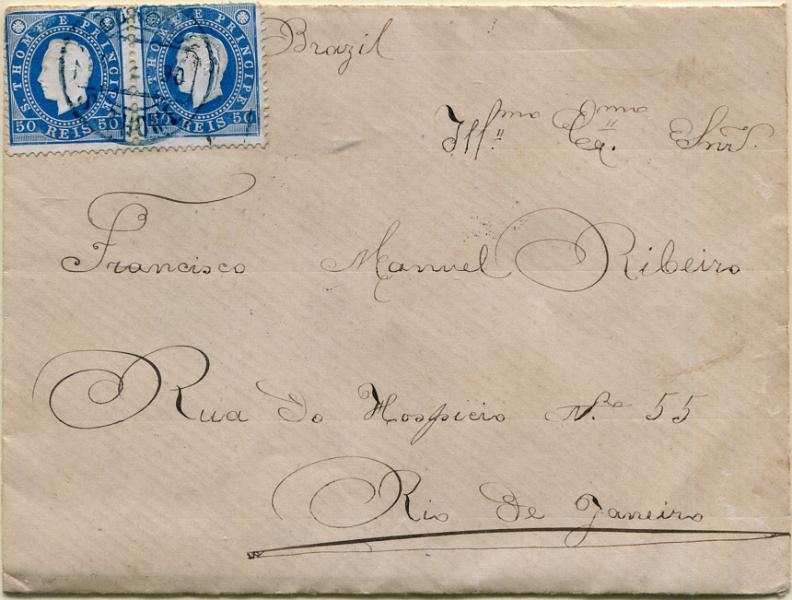 S THOME E PRINCIPE
50 REIS 50
S THOME E PRINCIPE
50 REIS 50
Brazil
Illmo Exmo Snr.
Francisco Manuel Ribeiro
Rua Do Hospicio No 55
Rio De Janeiro